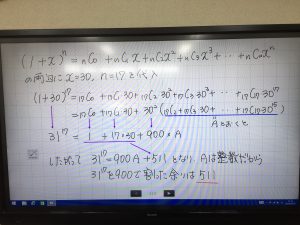 (1+x)ⁿ = ₙC₀ + ₙC₁x + ₙC₂x² + ₙC₃x³ + ⋯ + ₙCₙxⁿ
の両辺に x=30, n=17 を代入
(1+30)¹⁷ = ₁₇C₀ + ₁₇C₁30 + ₁₇C₂30² + ₁₇C₃30³ + ⋯ + ₁₇C₁₇30¹⁷
= ₁₇C₀ + ₁₇C₁30 + 30²(₁₇C₂ + ₁₇C₃30 + ⋯ + ₁₇C₁₇30¹⁵)
Aとおくと
31¹⁷ = 1 + 17×30 + 900×A
したがって 31¹⁷ = 900A + 511 となり、Aは整数だから
31¹⁷を900で割った余りは 511